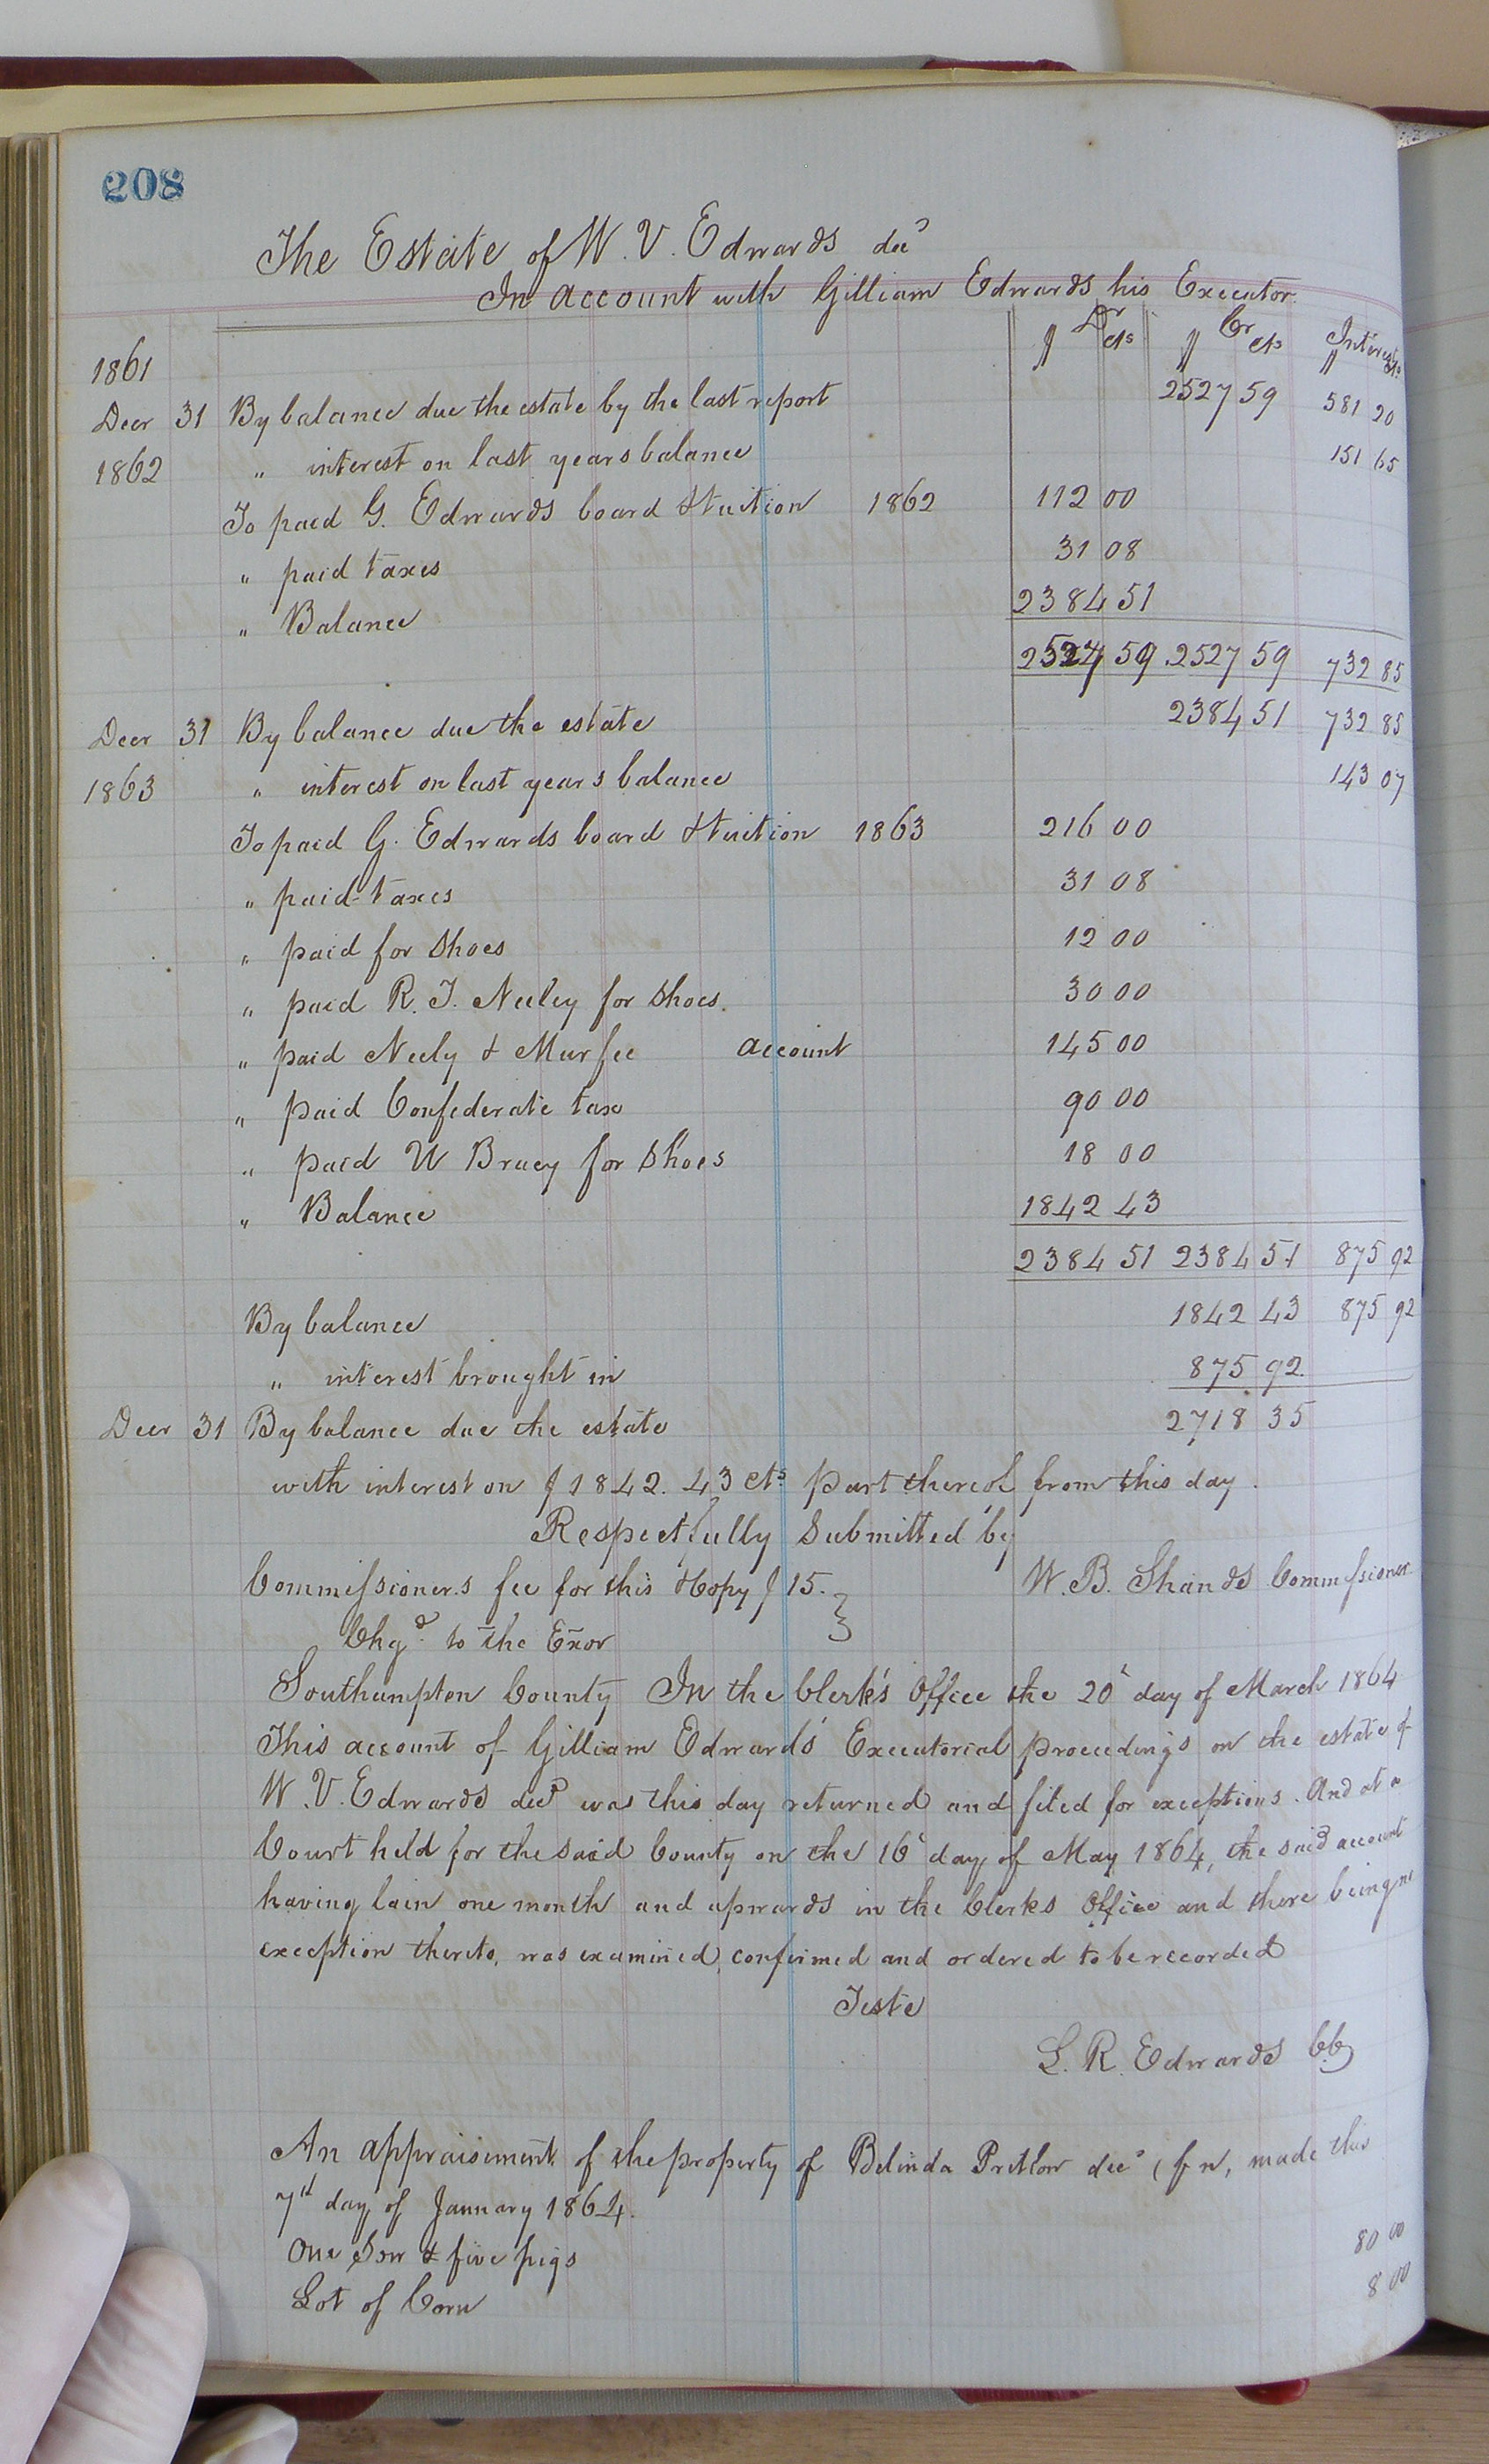 208
The Estate of W. V. Edwards decd
In account with Gilliam Edwards his Executor
$ Dr cts $ Cr cts Interest $ cts
1861
Decr 31 By balance due the estate by the last report 2527 59 581 20
1862 " interest on last years balance 151 65
To paid G. Edwards board & tuition 1862 112 00
" paid taxes 31 08
" Balance 2384 51
2527 59 2527 59 732 85
Decr 31 By balance due the estate 2384 51 732 85
1863 " interest on last years balance 143 07
To paid G. Edwards board & tuition 1863 216 00
" paid taxes 31 08
" paid for Shoes 12 00
" paid R. T. Neeley for Shoes. 30 00
" paid Neely & Murfee account 145 00
" paid Confederate tax 90 00
" paid W Bracy for Shoes 18 00
" Balance 1842 43
2384 51 2384 51 875 92
By balance 1842 43 875 92
" interest brought in 875 92
Decr 31 By balance due the estate 2718 35
with interest on $1842.43 cts part thereof from this day.
Respectfully Submitted by
Commissioner.s fee for this & Copy $15. W. B. Shands Commissioner
Chgd. to the Exor
Southampton County In the Clerk's Office the 20' day of March 1864
This account of Gilliam Edwards' Executorial proceedings on the estate of
W. V. Edwards decd was this day returned and filed for exceptions. And at a
Court held for the said County on the 16' day of May 1864, the said account
having lain one month and upwards in the Clerks Office and there being no
exception thereto, was examined, confirmed and ordered to be recorded
Teste
L. R. Edwards CC
An appraisement of the property of Belinda Pretlow decd (f n, made this
7th day of January 1864.
One Sow & five pigs 80 00
Lot of Corn 8 00